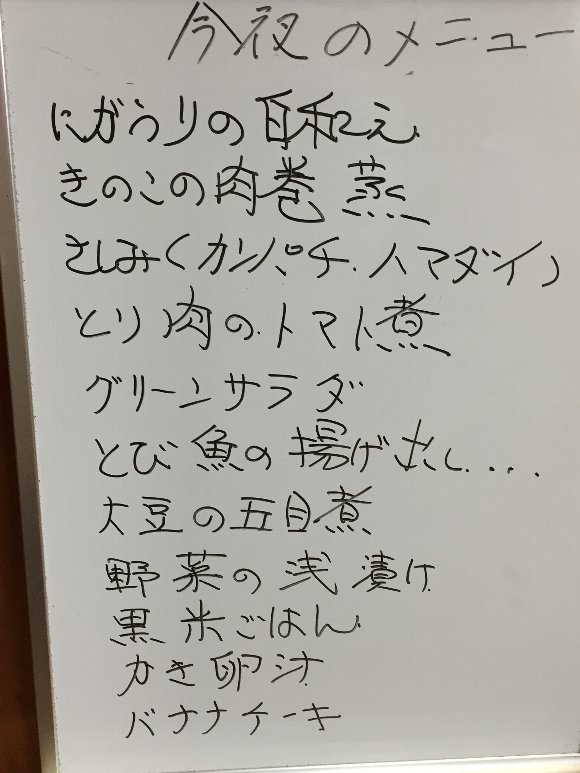 今夜のメニュー
にがうりの白和え
きのこの肉巻蒸
さしみ(カンパチ.ハマダイ)
とり肉のトマト煮
グリーンサラダ
とび魚の揚げ出し....
大豆の五目煮
野菜の浅漬け
黒米ごはん
かき卵汁
バナナケーキ